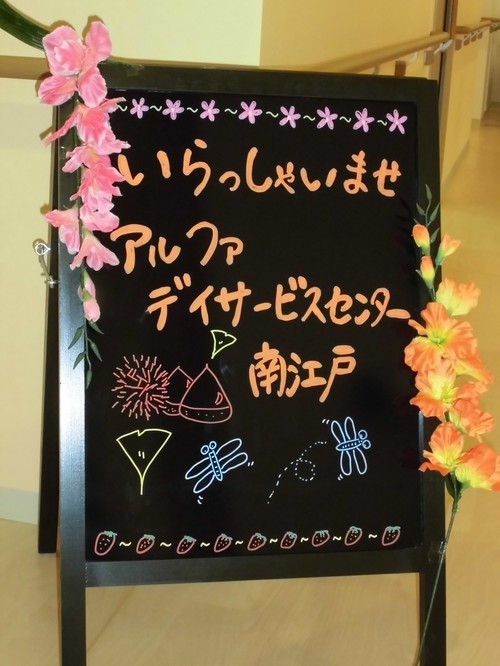 いらっしゃいませ
アルファ
デイサービスセンター
南江戸